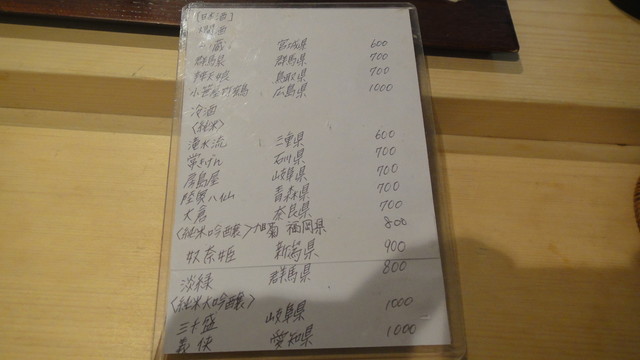 [日本酒]
燗酒
蔵 宮城県 600
群馬泉 群馬県 700
鳥取県 700
小笹屋竹鶴 広島県 1000
冷酒
〈純米〉
滝水流 三重県 600
石川県 700
房島屋 岐阜県 700
陸奥八仙 青森県 700
大倉 奈良県 700
〈純米吟醸〉旭菊 福岡県 800
奴奈姫 新潟県 900
淡緑 群馬県 800
〈純米大吟醸〉
三千盛 岐阜県 1000
義侠 愛知県 1000